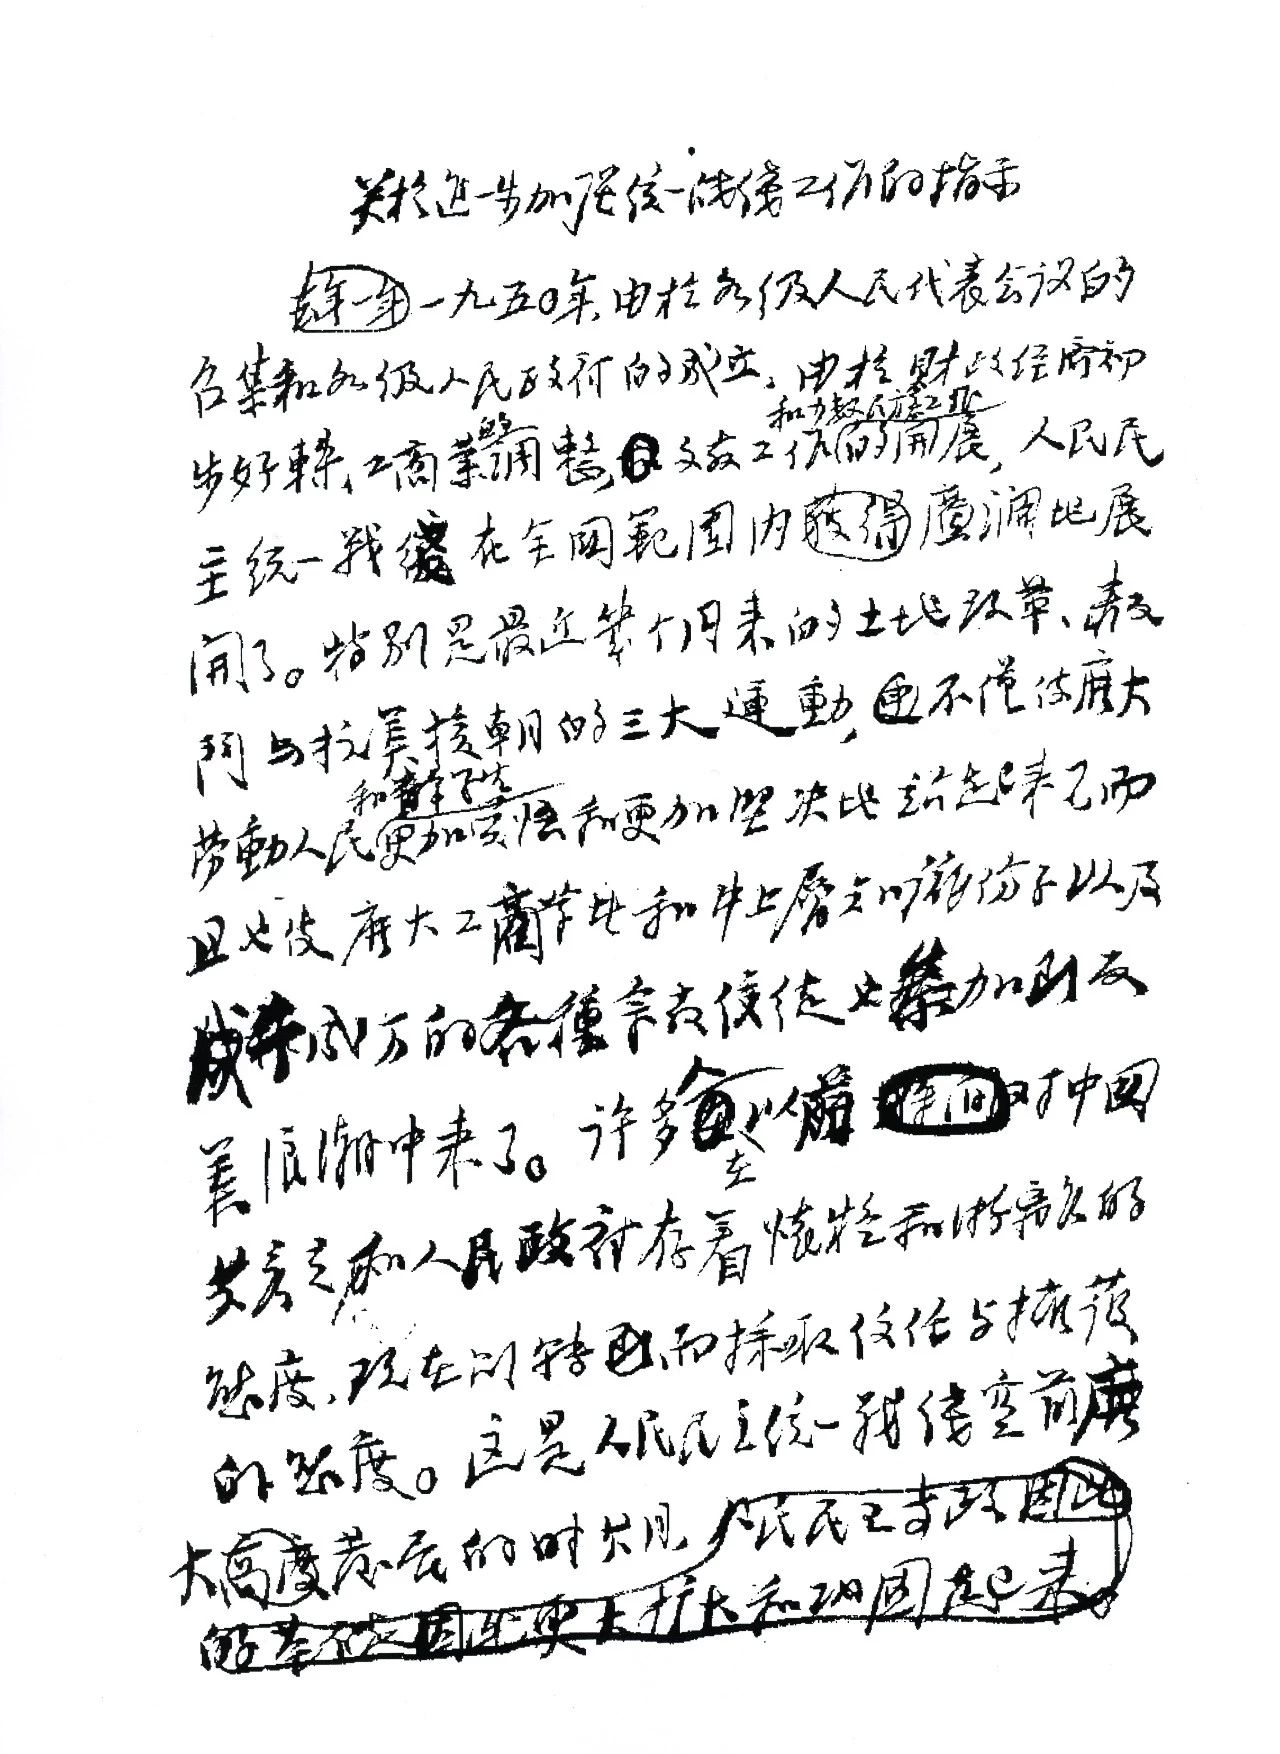 关於進一步加强统一战线工作的指示
去年一年一九五〇年,由於各级人民代表会议的
召集和各级人民政府的成立,由於财政经济初
步好轉、工商業的調整,文教工作和的開展,人民民
主统一战线在全國範圍内獲得廣濶地展
開了。特别是最近幾个月来的土地改革、
与抗美援朝的三大運動,不僅使廣大
和青年学生
劳動人民更加觉悟和更加坚决地站起来了而
且也使廣大工商業者和中上層知識份子以及
成千成万的各種宗教信徒也参加到反
美浪潮中来了。许多人以前对中國
在
共产党和人民政府存着懷疑和游離的
態度,现在则轉而採取信任与擁護
的態度。这是人民民主统一战线空前廣
大高度发展的时期,人民民主专政因此
的基础因此更大扩大和巩固起来。